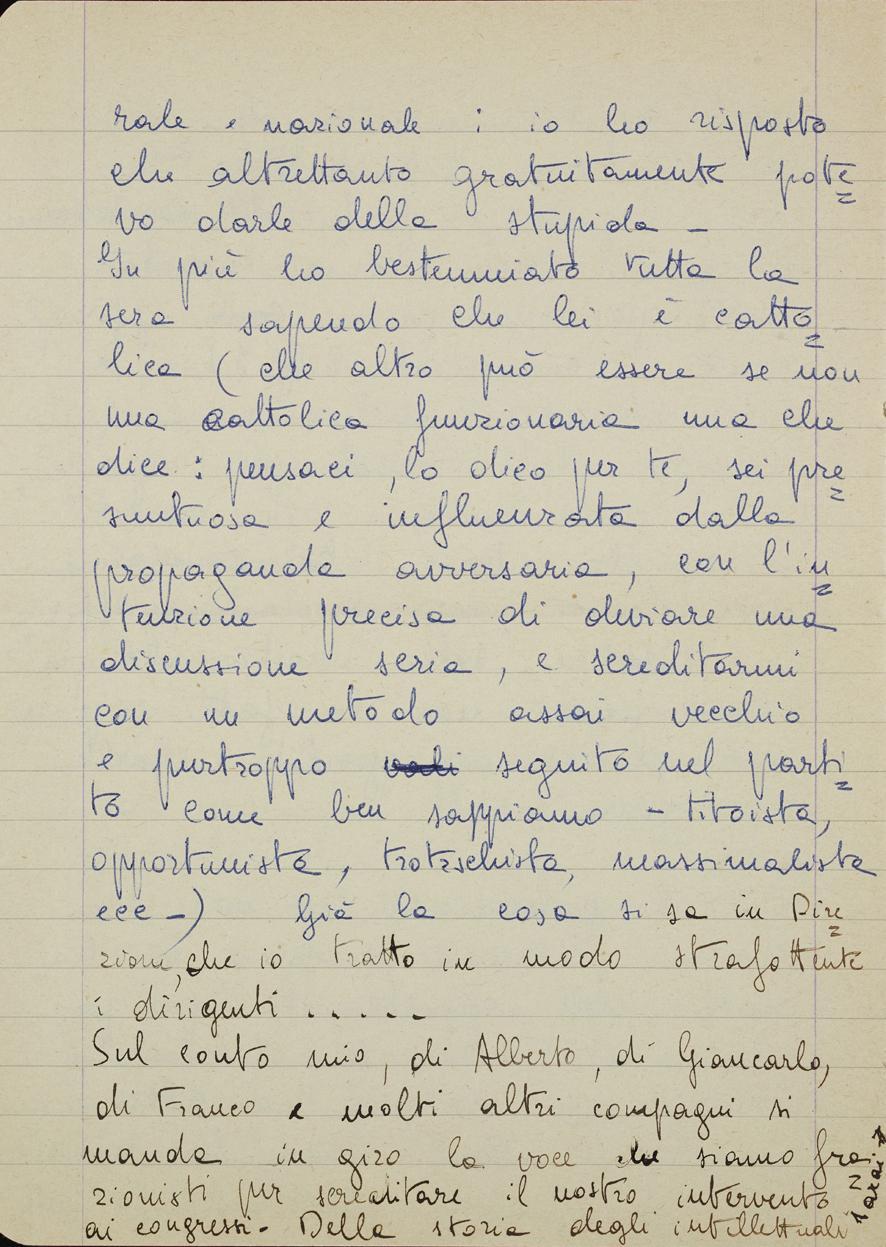 rale e nazionale : io ho risposto
che altrettanto gratuitamente pote=
vo darle della stupida -
In più ho bestemmiato tutta la
sera sapendo che lei è catto=
lica ( che altro può essere se non
una cattolica funzionaria una che
dice : pensaci , lo dico per te, sei pre=
suntuosa e influenzata dalla
propaganda avversaria , con l'in=
tenzione precisa di deviare una
discussione seria , e screditarmi
con un metodo assai vecchio
e purtroppo seguito nel parti=
to come ben sappiamo - titoista,
opportunista , trotzschista, massimalista
ecc -) Già la cosa si sa in Dire=
zione, che io tratto in modo strafottente
i dirigenti . . . . .
Sul conto mio , di Alberto , di Giancarlo,
di Franco e molti altri compagni si
manda in giro la voce che siamo fra=
zionisti per screditare il nostro intervento
ai congressi - Della storia degli intellettuali